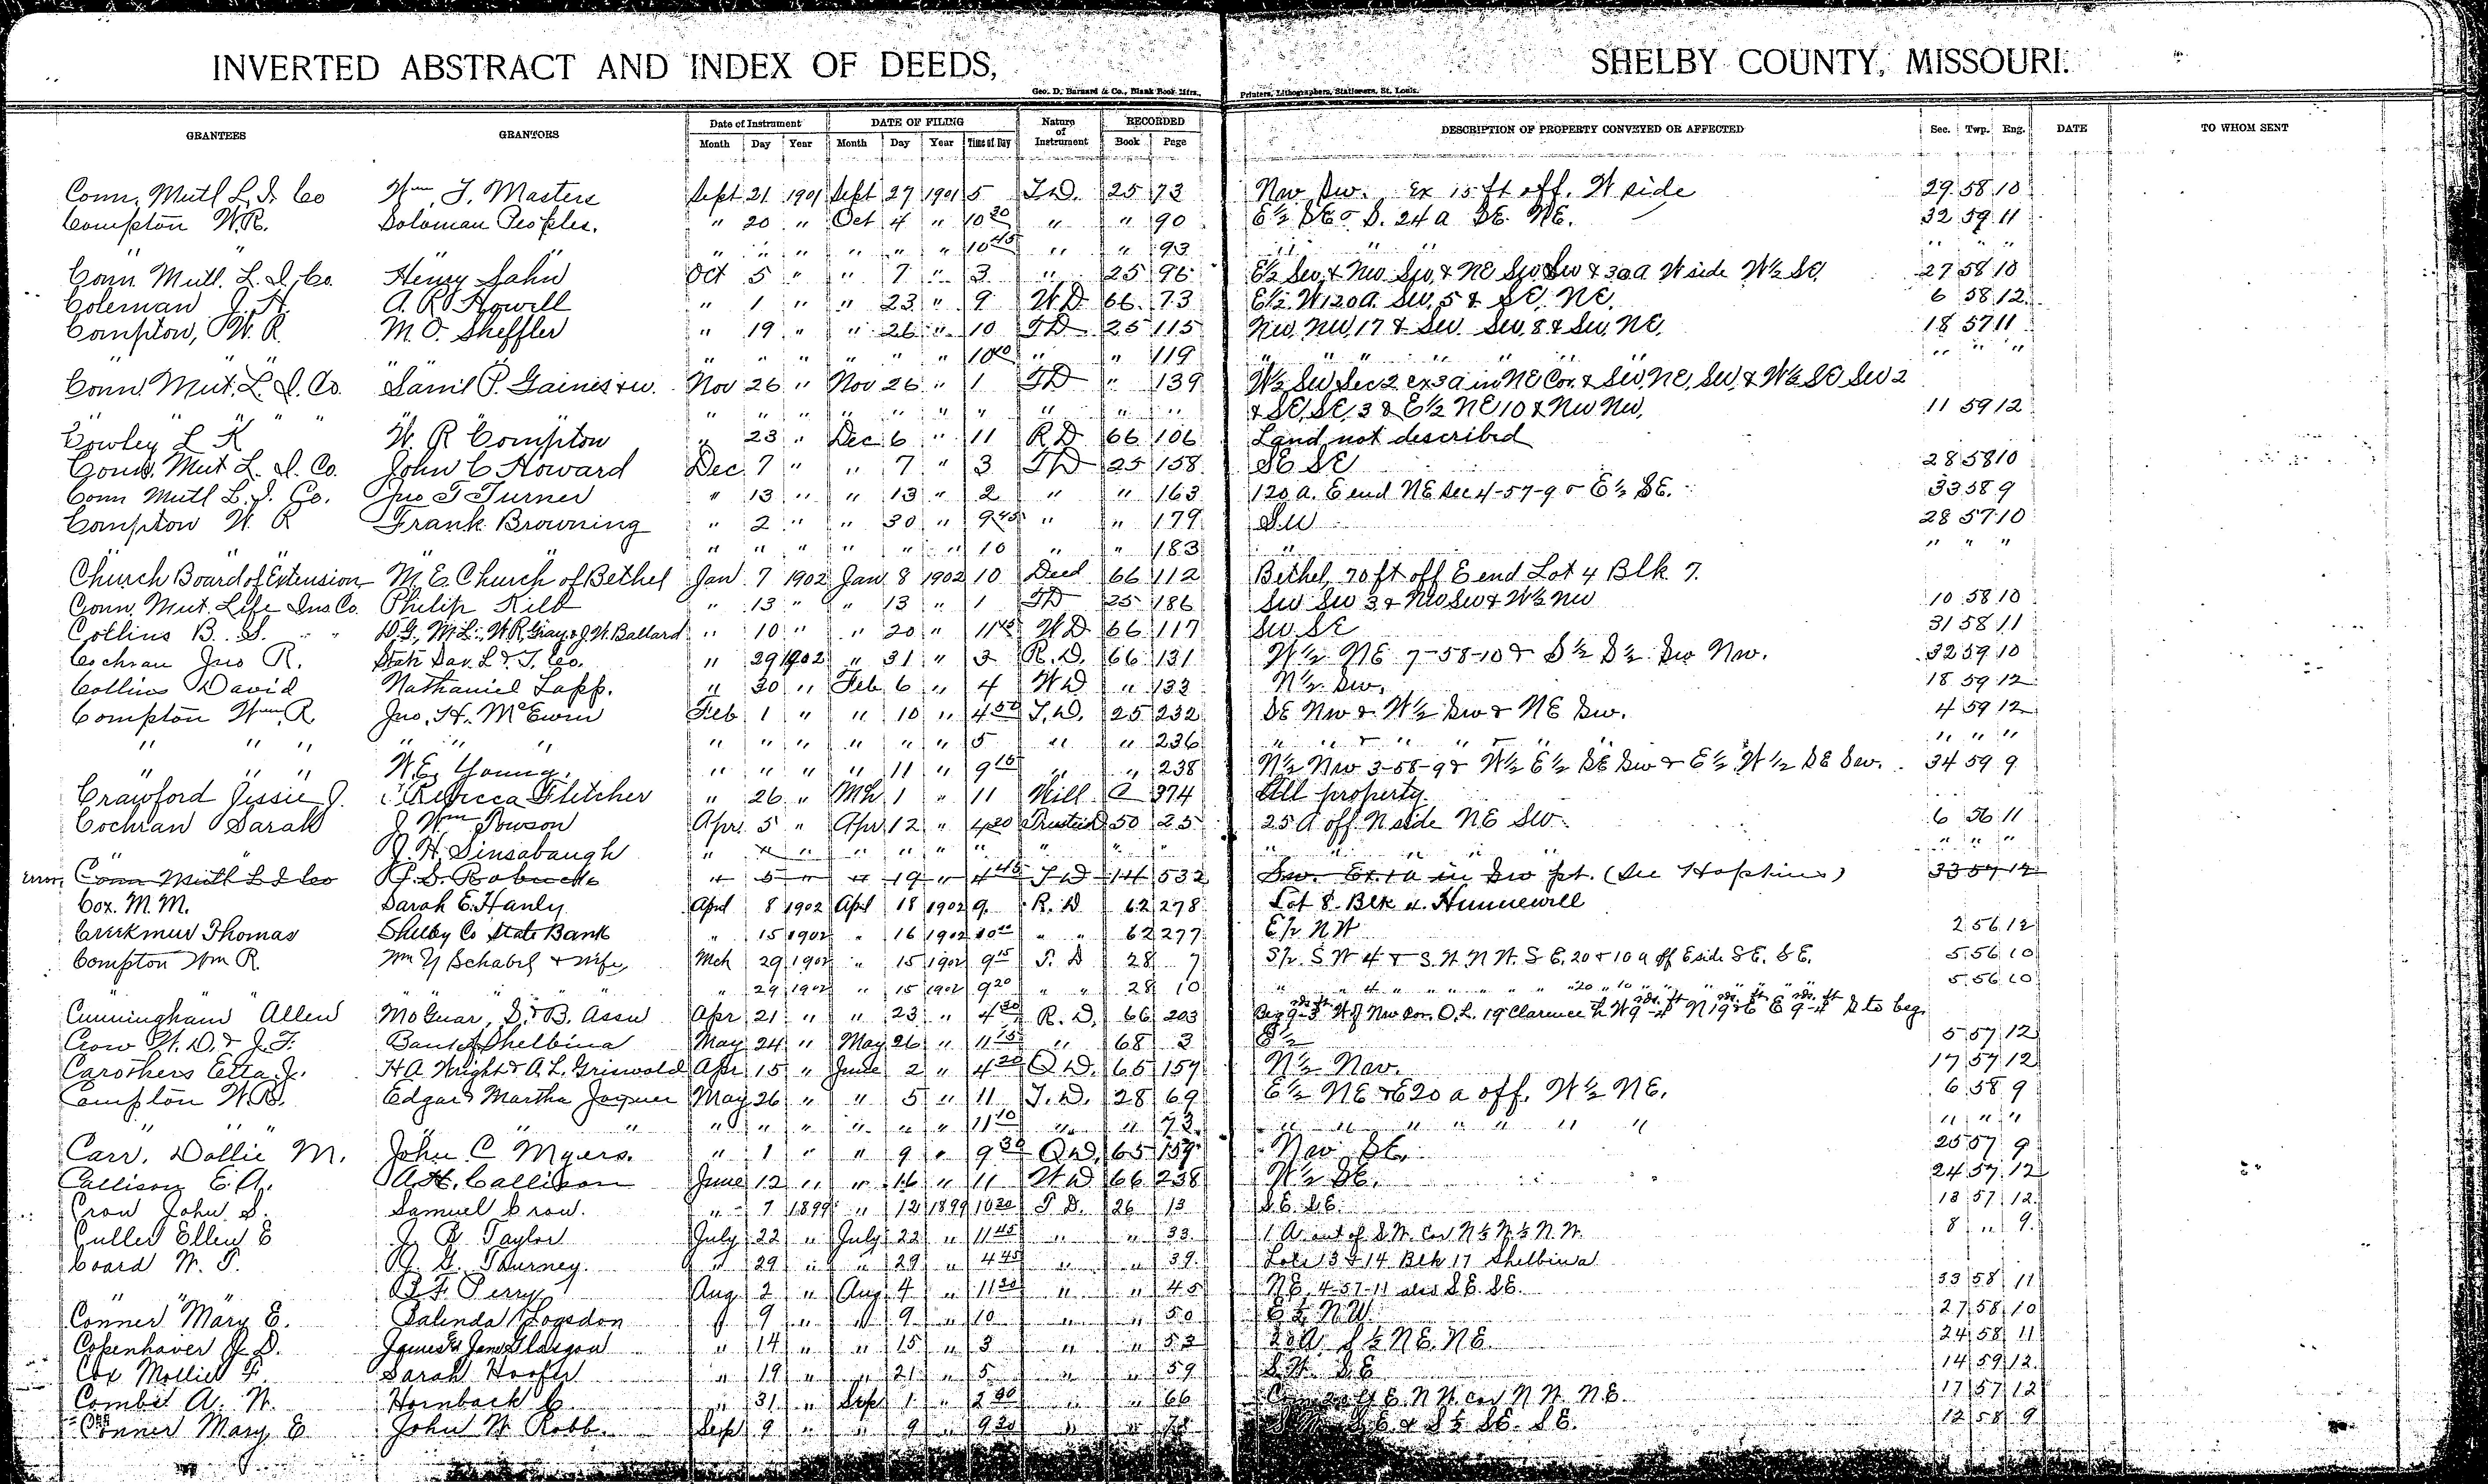 INVERTED ABSTRACT AND INDEX OF DEEDS, SHELBY COUNTY, MISSOURI.
Geo. D. Barnard & Co., Blank Book Mfrs., Printers, Lithographers, Stationers, St. Louis.
GRANTEES GRANTORS Date of Instrument DATE OF FILING Nature of Instrument RECORDED DESCRIPTION OF PROPERTY CONVEYED OR AFFECTED Sec. Twp. Rng. DATE TO WHOM SENT
Month Day Year Month Day Year Time of Day Book Page
Conn. Mutl L. I. Co Wm. T. Masters Sept 21 1901 Sept 27 1901 5 T.D. 25 73 Nw Sw. Ex 15 ft off. W side 29 58 10
Compton W.R. Soloman Peoples. " 20 " Oct 4 " 10 30 " " 90 E½ SE & S. 24 a SE. NE. 32 59 11
" " " " " " " " 10 45 " " 93 " " " " " "
Conn Mutl. L. I. Co. Henry Sahn Oct 5 " " 7 " 3 " 25 96 E½ Sw, & Nw Sw, & NE Sw Sw & 30 a W side W½ SE. 27 58 10
Coleman J. H. A. R. Howell " 1 " " 23 " 9 WD 66 73 E½ W 120 a. Sw, 5 & SE, NE. 6 58 12
Compton, W. R. M. O. Sheffler " 19 " " 26 " 10 TD 25 115 Nw, Nw, 17 & Sw Sw, 8 & Sw, NE, 18 57 11
" " " " " " " " " 10 40 " " 119 " " " " " " " " "
Conn Mut. L. I. Co. Saml P. Gaines & w. Nov 26 " Nov 26 " 1 TD " 139 W½ Sw Sec 2 ex 3 a in NE Cor. & Sw, NE, Sw, & W½ SE Sw 2
" " " " " " " " " " " " " " & SE, SE, 3 & E½ NE 10 & Nw Nw, 11 59 12
Cowley L K W. R Compton " 23 " Dec 6 " 11 R D 66 106 Land not described
Conn. Mut L. I. Co. John C Howard Dec 7 " " 7 " 3 TD 25 158 SE SE 28 58 10
Conn Mutl L. I. Co. Jno T Turner " 13 " " 13 " 2 " " 163 120 a. E end NE Sec 4-57-9 & E½ SE. 33 58 9
Compton W. R Frank Browning " 2 " " 30 " 9 45 " " 179 Sw 28 57 10
" " " " " " " " " " 10 " " 183 " " " "
Church Board of Extension M. E. Church of Bethel Jan 7 1902 Jan 8 1902 10 Deed 66 112 Bethel, 70 ft off E end Lot 4 Blk. 7.
Conn. Mut. Life Ins Co. Philip Kilb " 13 " " 13 " 1 TD 25 186 Sw Sw 3 & Nw Sw & W½ Nw 10 58 10
Collins B. S. D.G., M.L., W.R. Gray & J.W. Ballard " 10 " " 20 " 11 45 WD 66 117 Sw SE 31 58 11
Cochran Jno R. State Sav. L & T. Co. " 29 1902 " 31 " 3 R.D. 66 131 W½ NE 7-58-10 & S½ S½ Sw Nw. 32 59 10
Collins David Nathaniel Lapp. " 30 " Feb 6 " 4 WD " 133 N½ Sw. 18 59 12
Compton Wm R. Jno. H. McEwin Feb 1 " " 10 " 4 50 T.D. 25 232 SE Nw & W½ Sw & NE Sw. 4 59 12
" " " " " " " " " " " " 5 " " 236 " " & " " & " " " " "
" " " W.E. Young. " " " " 11 " 9 15 " " 238 N½ Nw 3-58-9 & W½ E½ SE Sw & E½ W½ SE Sw. 34 59 9
Crawford Jessie J. Rebecca Fletcher " 26 " Mch 1 " 11 Will 374 All property.
Cochran Sarah J Wm Towson Apr. 5 " Apr 12 " 4 30 Trustee D 50 25 25 A off N side NE Sw. 6 56 11
" " J. H. Sinsabaugh " " " " " " " " " " " " " " " " "
Error, Conn Mutl L I Co R. S. Robuck " 5 " " 19 " 4 45 TD 14 532 Sw. Ex. 1 a in Sw pt. (See Hopkins) 33 57 12
Cox. M. M. Sarah E. Hanly April 8 1902 April 18 1902 9. R. D 62 278 Lot 8. Blk 4. Hunnewell
Thomas Shelby Co State Bank " 15 1902 " 16 1902 " " 62 277 E½ NW 2 56 12
Compton Wm R. Wm Y Schabel & wife Mch 29 1902 " 15 1902 9 15 T. D 28 7 S½ SW 4 & S.W. N W. S E, 20 & 10 a off E side S E. S E. 5 56 10
" " " " " " 29 1902 " 15 1902 9 20 " " 28 10 " " 4 " " " " " 20 " 10 " " " " " 5 56 10
Cunningham Allen Mo Guar, S. & B. Assn Apr 21 " " 23 " 4 30 R. D. 66 203 Beg W of Nw Cor. O.L. 19 Clarence S to beg.
Crow W. D. & J. F. Bank of Shelbina May 24 " May 26 " 11 " 68 3 5 57 12
Carothers Etta J. H A Wright & A. L. Griswold Apr 15 " June 2 " 4 20 Q.D. 65 157 N½ Nw. 17 57 12
Compton W.R. Edgar & Martha May 26 " " 5 " 11 T.D. 28 69 E½ NE & E 20 a off. W½ NE. 6 58 9
" " " " " " " " " " 11 10 " " 73 " " " " " " " " " "
Carr, Dollie M. John C Myers. " 1 " " 9 " 9 30 Q.D. 65 159 Nw SE. 25 57 9
Callison E. A. A. H. Callison June 12 " " 16 " 11 WD 66 238 W½ SE. 24 57 12
Crow John S. Samuel Crow. " 7 1899 " 12 1899 10 30 T. D. 26 13 S.E. S.E. 18 57 12
Culler Ellen E J. R Taylor July 22 " July 22 " 11 45 " " 33 1 A. out of S.W. Cor N½ N½ N.W. 8 " 9.
Coard W. T. R. G. Thurney. " 29 " " 29 " 4 45 " " 39. Lots 13 & 14 Blk 17 Shelbina
" " " B F. Perry Aug 2 " Aug 4 " 11 30 " " 45 NE, 4-57-11 also S.E. S.E. 33 58 11
Conner Mary E. Salinda Logsdon " 9 " " 9 " 10 " " 50 E½ N.W. 27 58 10
Copenhaver J. D. James & Jane Glasgow " 14 " " 15 " 3 " " 53 20 A. S½ NE. NE. 24 58 11
Cox Mollie F. Sarah Hoofer " 19 " " 21 " 5 " " 59 S.W. S.E 14 59 12.
Combs A. N. Hornback C " 31 " Sep 1 " " " 66 E. N W. cor N W. N.E. 17 57 12
Conner Mary E John W Robb. Sep 9 " " 9 " 9 20 " " 78 S.E. & S½ S.E. S.E. 12 58 9